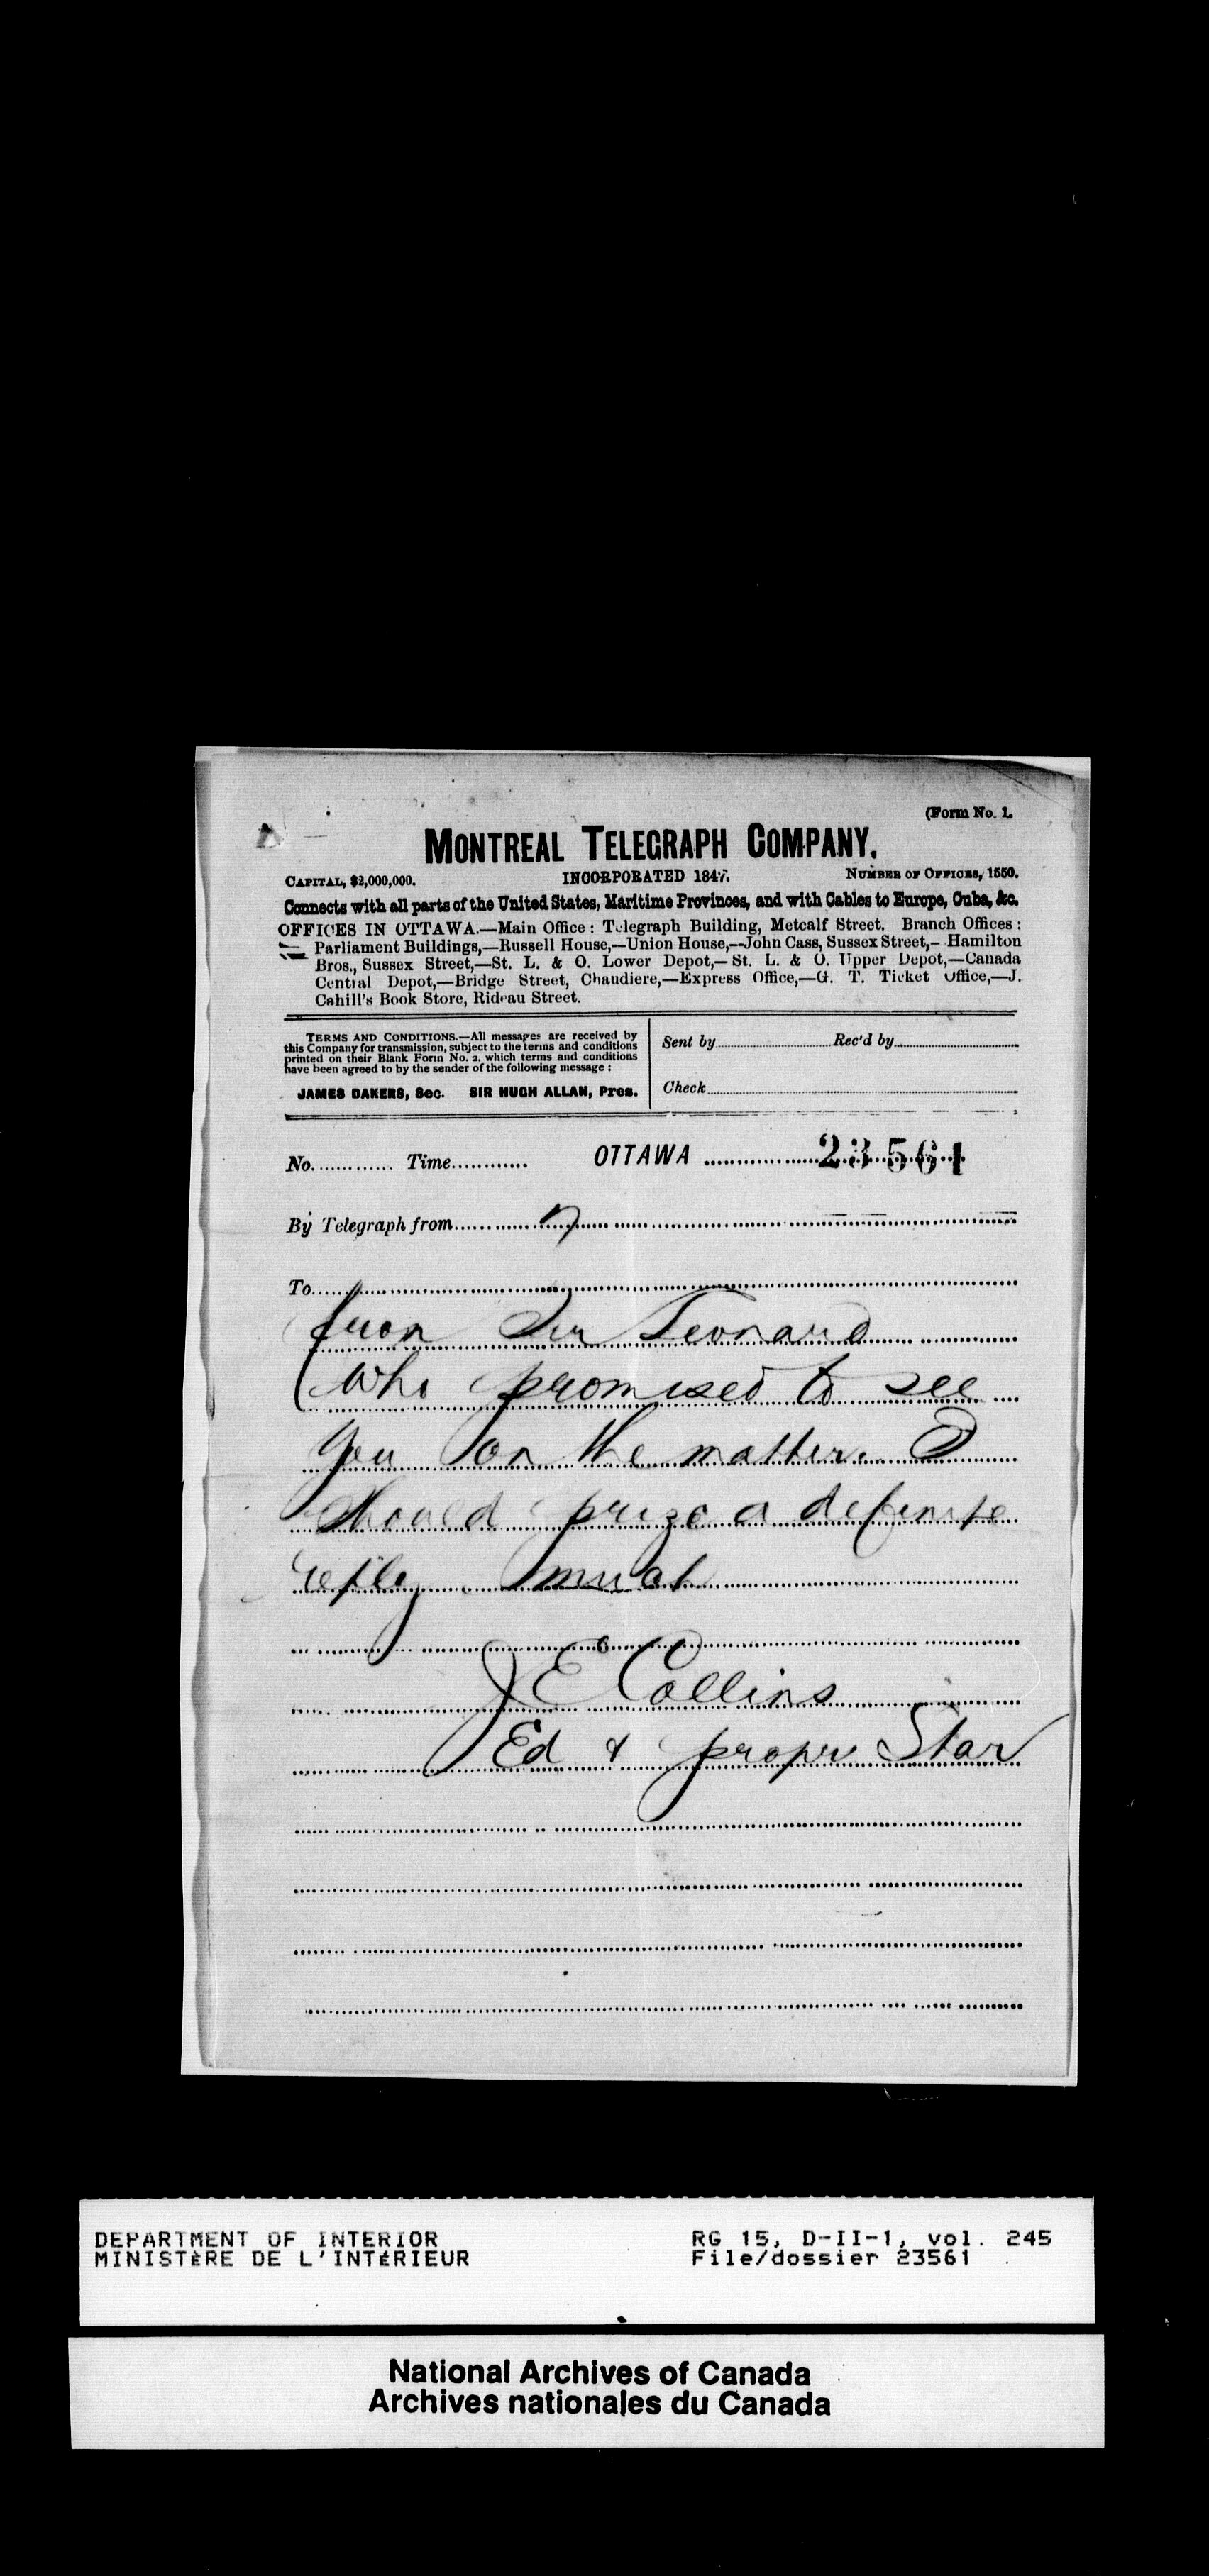 (Form No. 1.
MONTREAL TELEGRAPH COMPANY.
CAPITAL, $2,000,000. INCORPORATED 1847. NUMBER OF OFFICES, 1550.
Connects with all parts of the United States, Maritime Provinces, and with Cables to Europe, Cuba, &c.
OFFICES IN OTTAWA.—Main Office: Telegraph Building, Metcalf Street. Branch Offices:
Parliament Buildings,—Russell House,—Union House,—John Cass, Sussex Street,—Hamilton
Bros., Sussex Street,—St. L. & O. Lower Depot,—St. L. & O. Upper Depot,—Canada
Central Depot,—Bridge Street, Chaudiere,—Express Office,—G. T. Ticket Office,—J.
Cahill's Book Store, Rideau Street.
TERMS AND CONDITIONS.—All messages are received by
this Company for transmission, subject to the terms and conditions
printed on their Blank Form No. 2, which terms and conditions
have been agreed to by the sender of the following message:
JAMES DAKERS, Sec. SIR HUGH ALLAN, Pres.
Sent by Rec'd by
Check
No. Time OTTAWA 23561
By Telegraph from
To
from Sir Leonard
who promised to see
you on the matter. I
should prize a definite
reply much
J E Collins
Ed & propr Star
DEPARTMENT OF INTERIOR RG 15, D-II-1, vol. 245
MINISTÈRE DE L'INTÉRIEUR File/dossier 23561
National Archives of Canada
Archives nationales du Canada